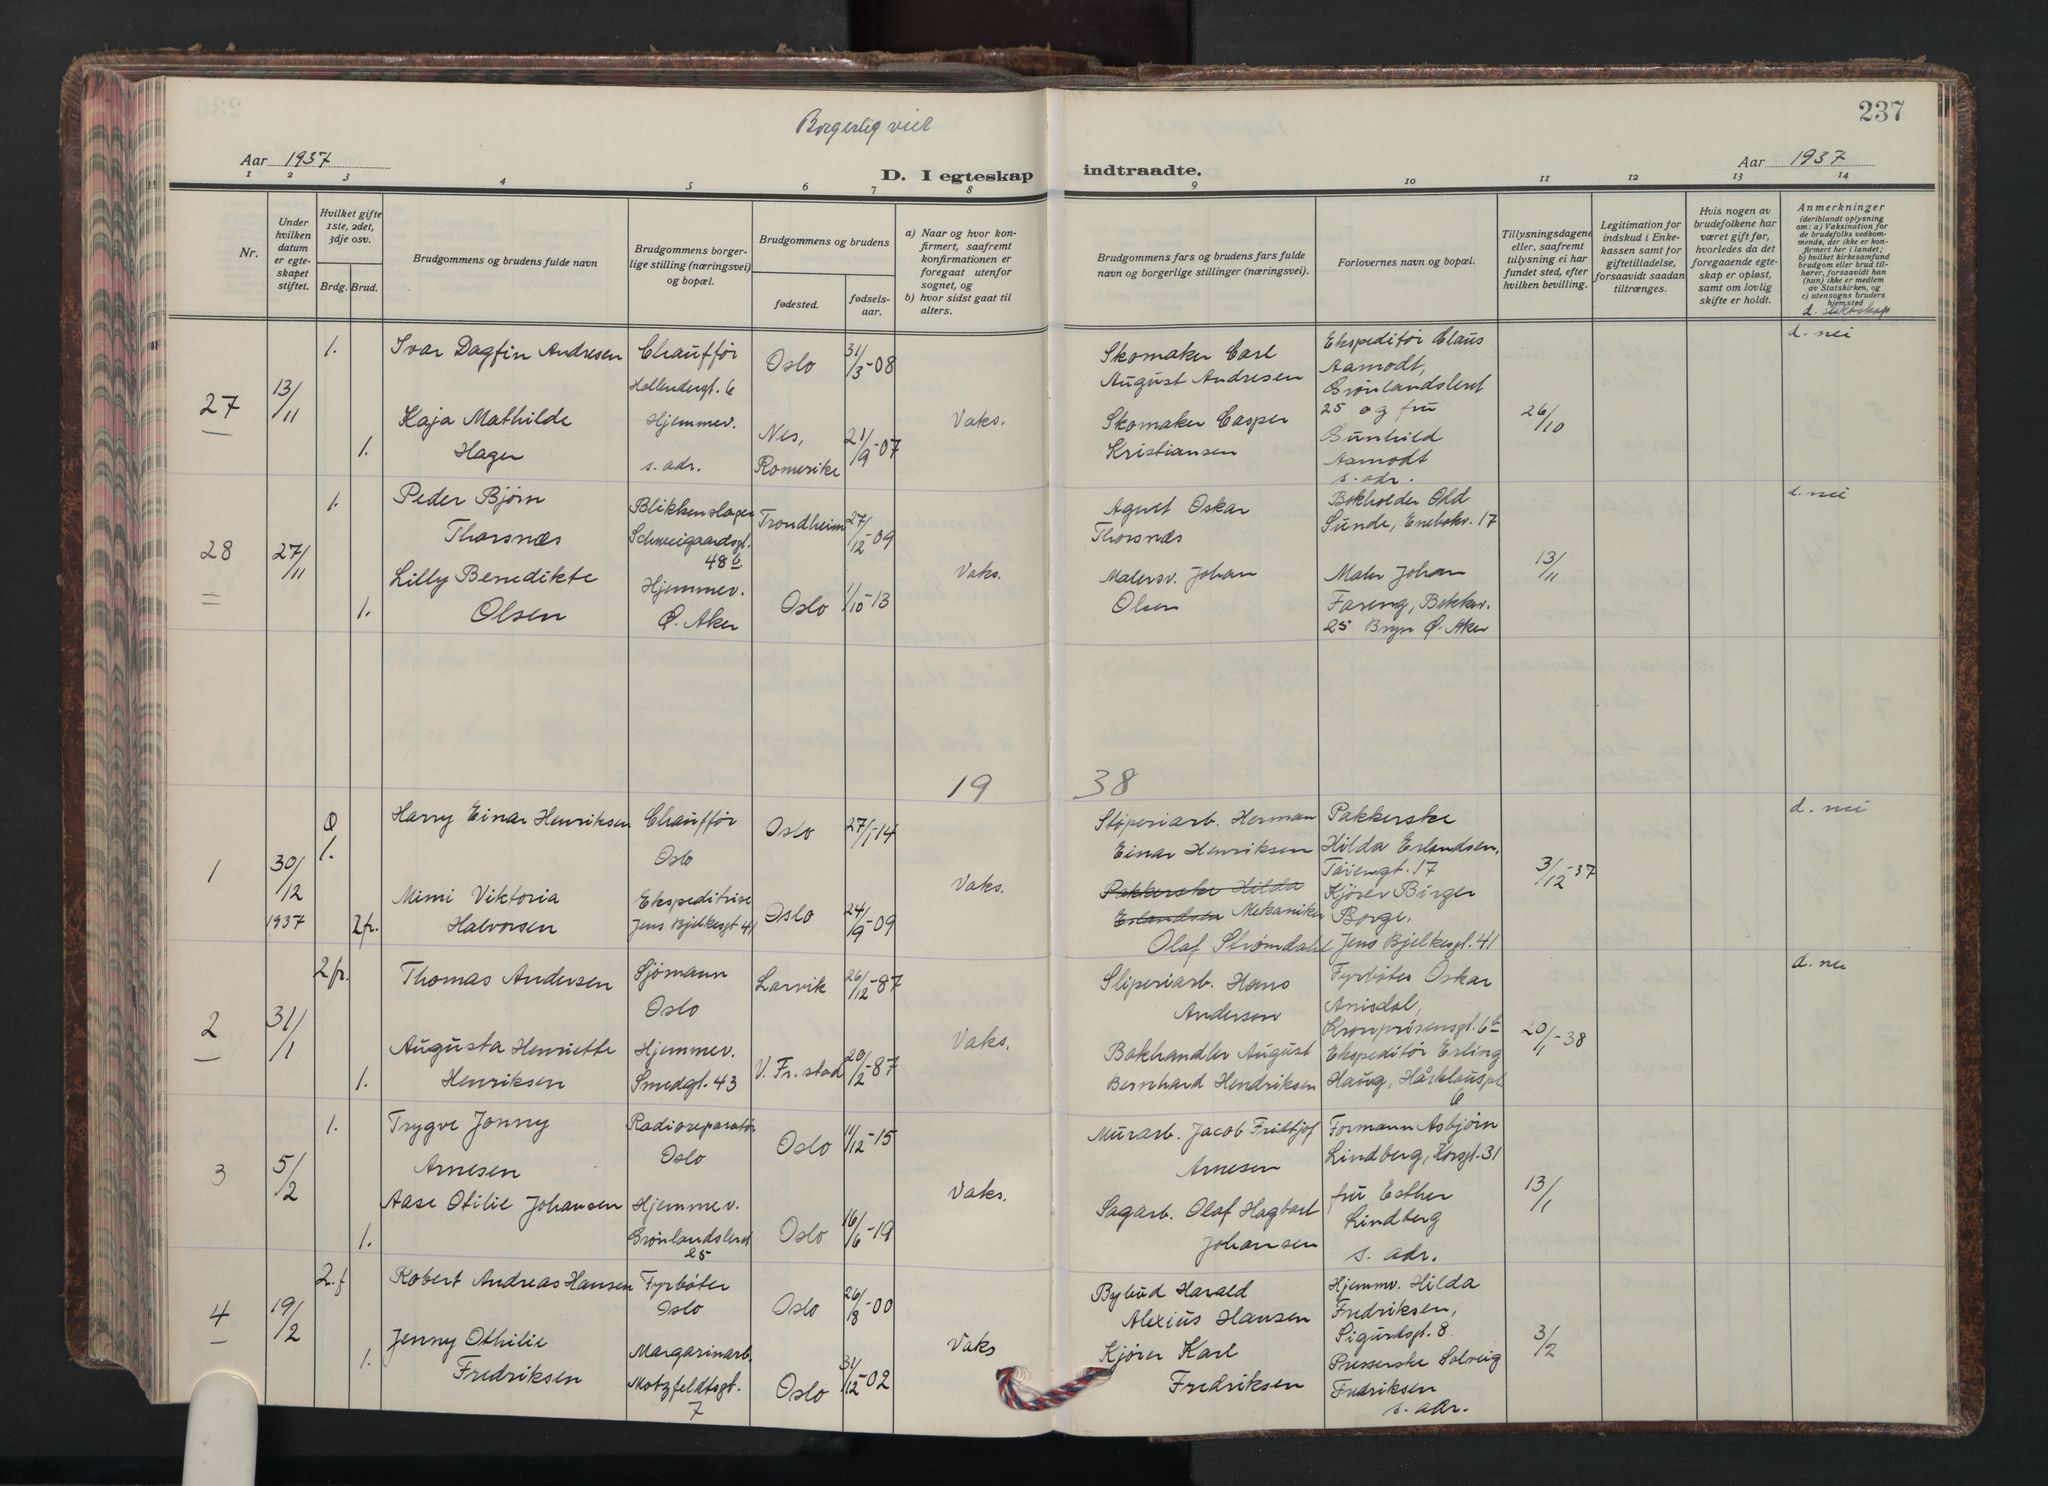 237
Borgerlig viet
Aar 1937
D. I egteskap indtraadte.
Aar 1937
1 2 3 4 5 6 7 8 9 10 11 12 13 14
Nr.
Under
hvilken
datum
er egte-
skapet
stiftet.
Hvilket gifte
1ste, 2det,
3dje osv.
Brdg. Brud.
Brudgommens og brudens fulde navn
Brudgommens borger-
lige stilling (næringsvei)
og bopæl.
Brudgommens og brudens
fødested.
fødsels-
aar.
a) Naar og hvor kon-
firmert, saafremt
konfirmationen er
foregaat utenfor
sognet, og
b) hvor sidst gaat til
alters.
Brudgommens fars og brudens fars fulde
navn og borgerlige stillinger (næringsvei).
Forlovernes navn og bopæl.
Tillysningsdagene
eller, saafremt
tillysning ei har
fundet sted, efter
hvilken bevilling.
Legitimation for
indskud i Enke-
kassen samt for
giftetilladelse,
forsaavidt saadan
tiltrænges.
Hvis nogen av
brudefolkene har
været gift før,
hvorledes da det
foregaaende egte-
skap er opløst,
samt om lovlig
skifte er holdt.
Anmerkninger
(deriblandt oplysning
om: a) Vaksination for
de brudefolks vedkom-
mende, der ikke er kon-
firmert her i landet;
b) hvilket kirkesamfund
brudgom eller brud til-
hører, forsaavidt han
(hun) ikke er medlem
av Statskirken, og
c) utensogns bruders
hjemsted
d. slektskap
27
13/11
1.
Ivar Dagfin Andresen
Chauffør
Hollendergt. 6
Oslo
31/3-08
Skomaker Carl
August Andresen
Ekspeditør Claus
Aamodt,
Grønlandsleret
25 og fru
Gunhild
Aamodt
s. adr.
d. nei
1.
Kaja Mathilde
Hagen
Hjemmev.
s. adr.
Nes,
Romerike
21/9-07
Vaks.
Skomaker Casper
Kristiansen
26/10
28
27/11
1.
Peder Bjørn
Thorsnæs
Blikkenslager
Schweigaardsgt.
48 b
Trondheim
27/12-09
Agnet Oskar
Thorsnæs
Bokholder Odd
Sunde, Enebakv. 17
d. nei
1.
Lilly Benedikte
Olsen
Hjemmev.
Ø. Aker
Oslo
1/10-13
Vaks.
Malersv. Johan
Olsen
Maler Johan
Fareng, Bekkev.
25 Bryn Ø. Aker
13/11
19 38
1
30/12
1937
Q
1.
Harry Einar Henriksen
Chauffør
Oslo
Oslo
27/1-14
Støperiarb. Herman
Einar Henriksen
Pakkerske
Hilda Erlandsen,
Tøiengt. 17
d. nei
2 fr.
Mimi Viktoria
Halvorsen
Ekspeditrise
Jens Bjelkesgt 41
Oslo
24/9-09
Vaks.
Pakkerske Hilda
Erlandsen Mekaniker
Olaf Strømdahl
Kjører Birger
Borge,
Jens Bjelkesgt. 41
3/12-37
2
31/1
2 fr.
Thomas Andersen
Sjømann
Oslo
Larvik
26/12-87
Sliperiarb. Hans
Andersen
Fyrbøter Oskar
Arnisdal,
Kronprinsensgt. 6 b
d. nei
1.
Augusta Henriette
Henriksen
Hjemmev.
Smedgt. 43
V. Fr.stad
20/2-87
Vaks.
Bokhandler August
Bernhard Hendriksen
Ekspeditør Erling
Haug, Hårklouspl.
6
20/1-38
3
5/2
1.
Trygve Jonny
Arnesen
Radioreparatør
Oslo
Oslo
11/12-15
Murarb. Jacob Fridtjof
Arnesen
Formann Asbjørn
Lindberg, Korsgt. 31
1.
Aase Otilie Johansen
Hjemmev.
Grønlandsleret
25
Oslo
16/6-19
Vaks.
Sagarb. Olaf Hagbart
Johansen
fru Esther
Lindberg
s. adr.
13/1
4
19/2
2. f
Robert Andreas Hansen
Fyrbøter
Oslo
Oslo
26/8-00
Bybud Harald
Alexius Hansen
Hjemmv. Hilda
Fredriksen,
Sigurdsgt. 8
1.
Jenny Othilie
Fredriksen
Margarinarb.
Motzfeldtsgt.
7
Oslo
31/12-02
Vaks
Kjører Karl
Fredriksen
Presserske Solveig
Fredriksen
s. adr.
3/2